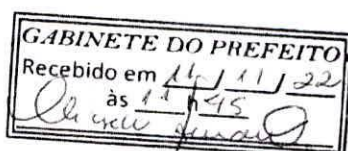 GABINETE DO PREFEITO
Recebido em 11 / 11 / 22
às 11 h 45